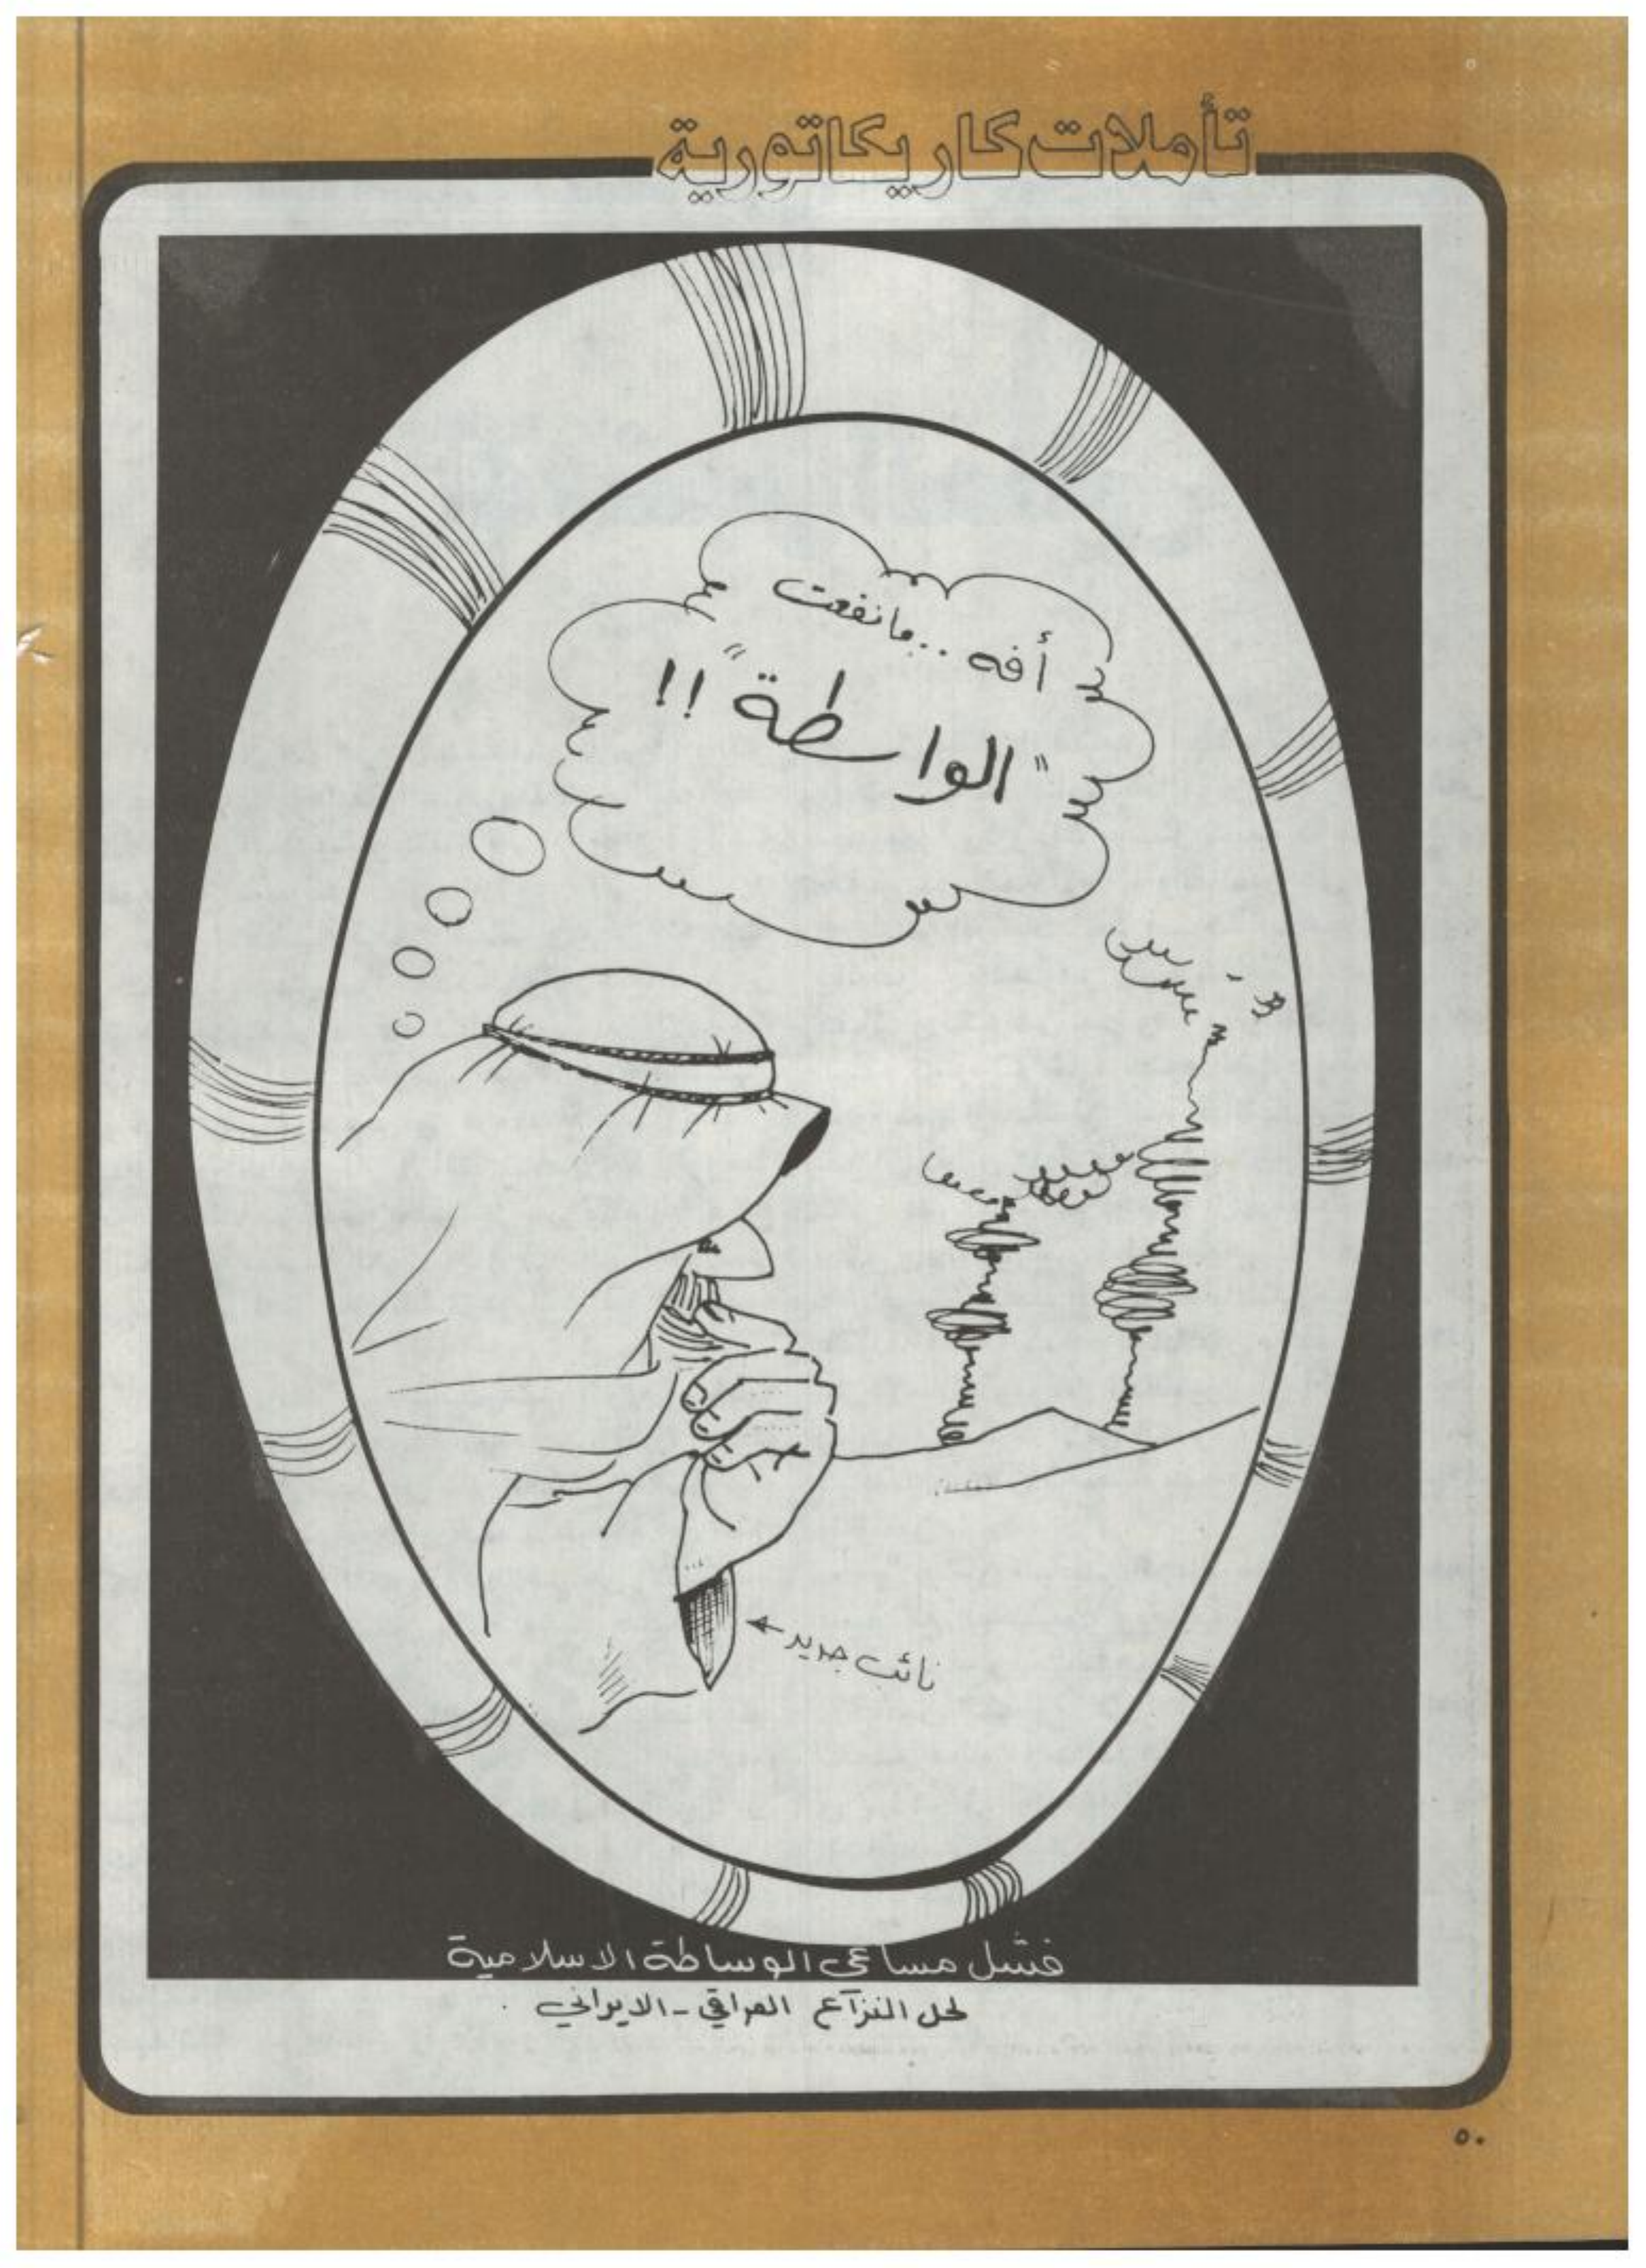 تأملات كاريكاتورية
أفه .. مانفعت
"الواسطة" !!
نائب جديد
فشل مساعي الوساطة الاسلامية
لحل النزاع العراقي - الايراني .
٥٠